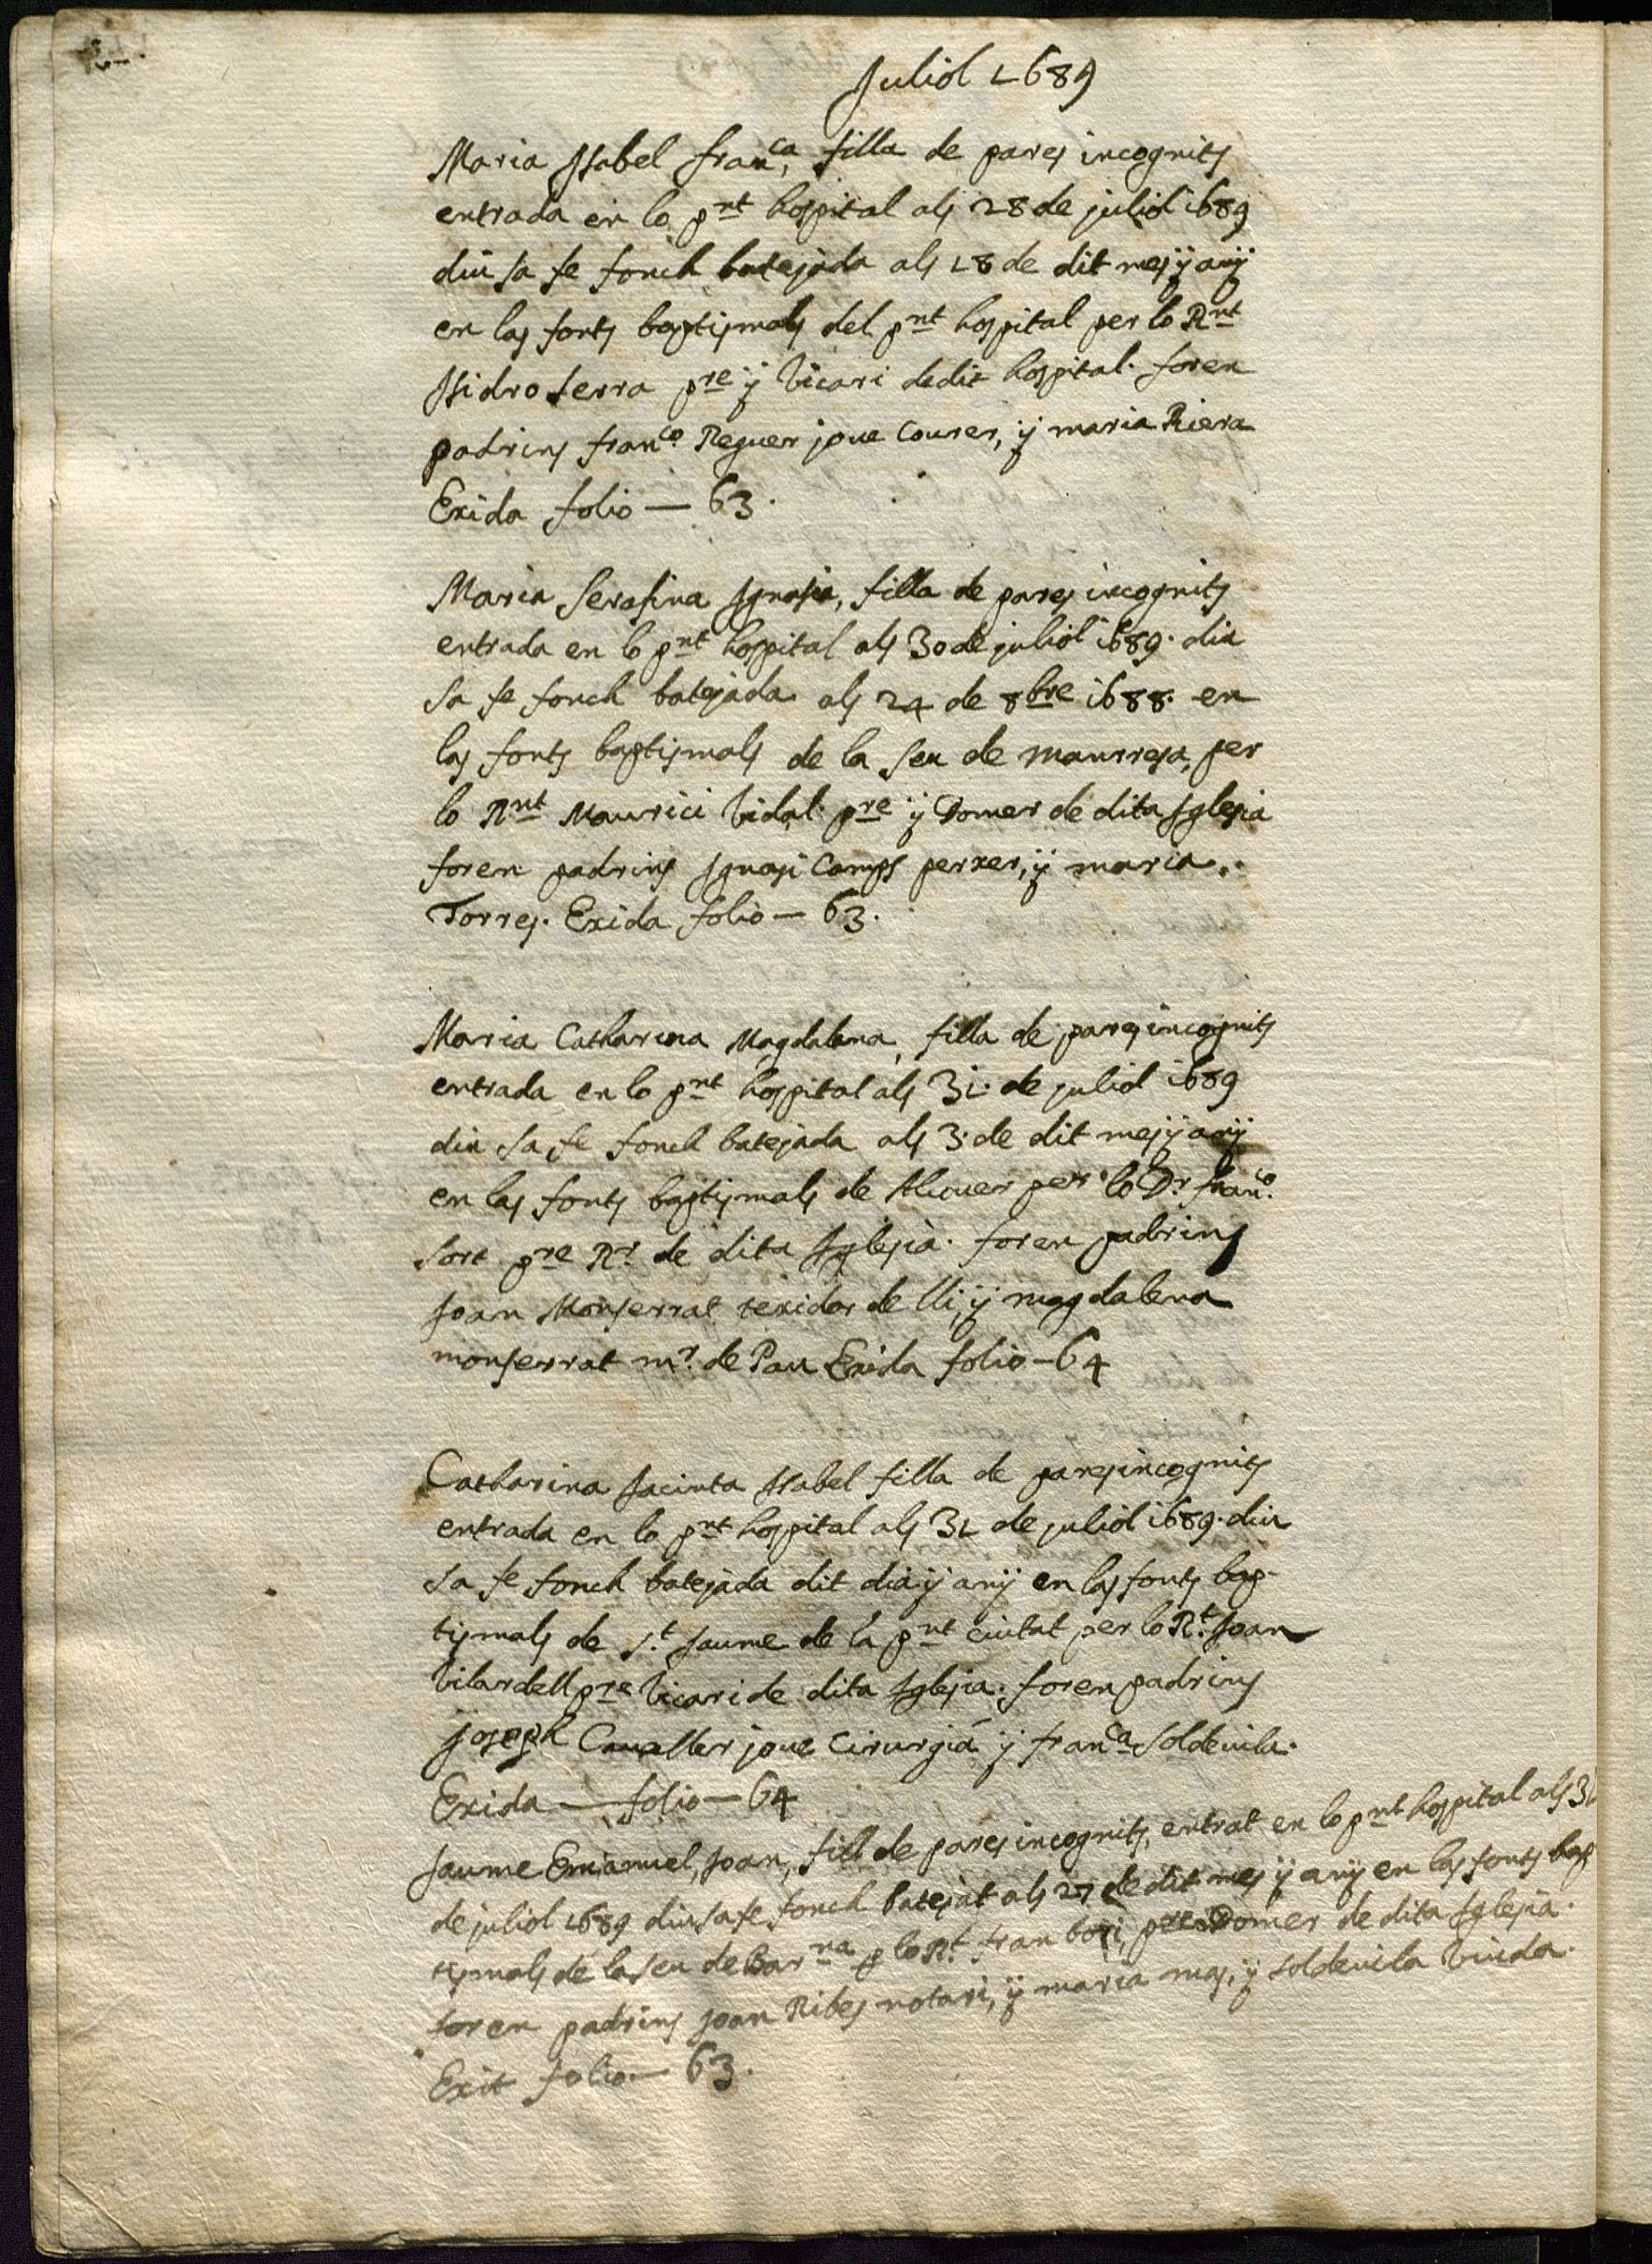 Juliol 1689
Maria Isabel fran.ca, filla de pares incognits
entrada en lo pnt hospital als 28 de juliol 1689
diu sa fe fonch batejada als 28 de dit mes y any
en las fonts baptismals del pnt hospital per lo Rnt
Isidro serra pre y Vicari de dit hospital. foren
padrins fran.co Reguer jove Courer, y maria Riera
Exida folio — 63.
Maria Serafina Ignasia, filla de pares incognits
entrada en lo pnt hospital als 30 de juliol 1689. diu
sa fe fonch batejada als 24 de 8bre 1688. en
las fonts baptismals de la seu de manrresa, per
lo Rnt Maurici Vidal. pre y Domer de dita Iglesia
foren padrins Ignasi Camps perxer, y maria
Torres. Exida folio — 63.
Maria Catharina Magdalena, filla de pares incognits
entrada en lo pnt hospital als 31. de juliol 1689
diu sa fe fonch batejada als 3. de dit mes y any
en las fonts baptismals de per lo Dr. fran.co
sort pre Rr. de dita Iglesia. foren padrins
Joan Monserrat texidor de lli, y magdalena
monserrat mr. de Pau Exida folio — 64
Catharina Jacinta Isabel filla de pares incognits
entrada en lo pnt hospital als 31 de juliol 1689. diu
sa fe fonch batejada dit dia y any en las fonts bap-
tismals de s.t Jaume de la pnt ciutat per lo R.t Joan
Vilardell pre Vicari de dita Iglesia. foren padrins
Joseph Cavaller jove Cirurgià y fran.ca Soldevila.
Exida — folio — 64
Jaume Emanuel, Joan, fill de pares incognits, entrat en lo pnt hospital als 31
de juliol 1689 diu sa fe fonch batejat als 27 de dit mes y any en las fonts bap
tismals de la seu de Bar.na p lo R.t fran bori, pre Domer de dita Iglesia.
foren padrins Joan Ribes notari, y maria mas, y soldevila Viuda.
Exit folio — 63.